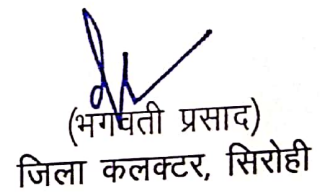 (भगवती प्रसाद)
जिला कलक्टर, सिरोही